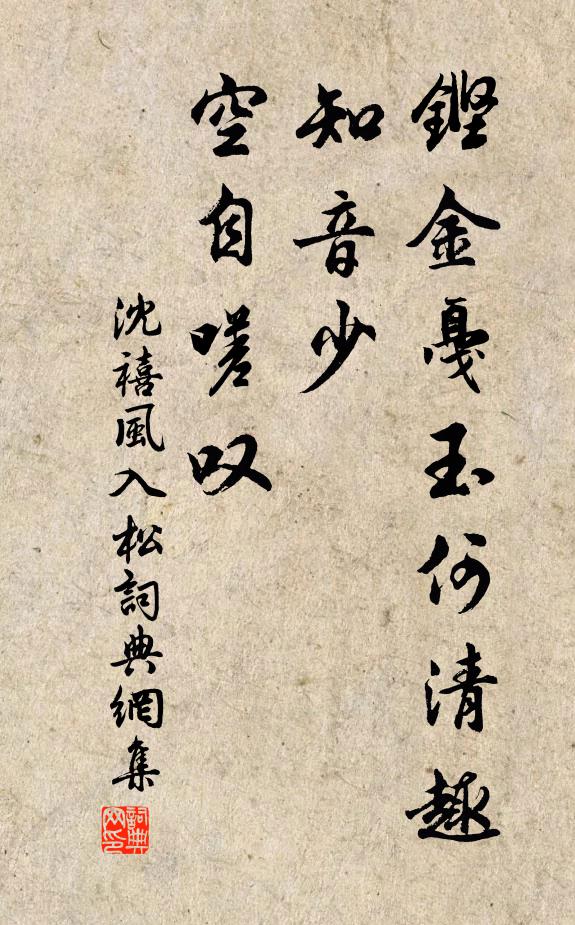 鏗金戛玉何清趣
知音少
空自嗟叹
沈禧風入松詞典網集
詞典网印